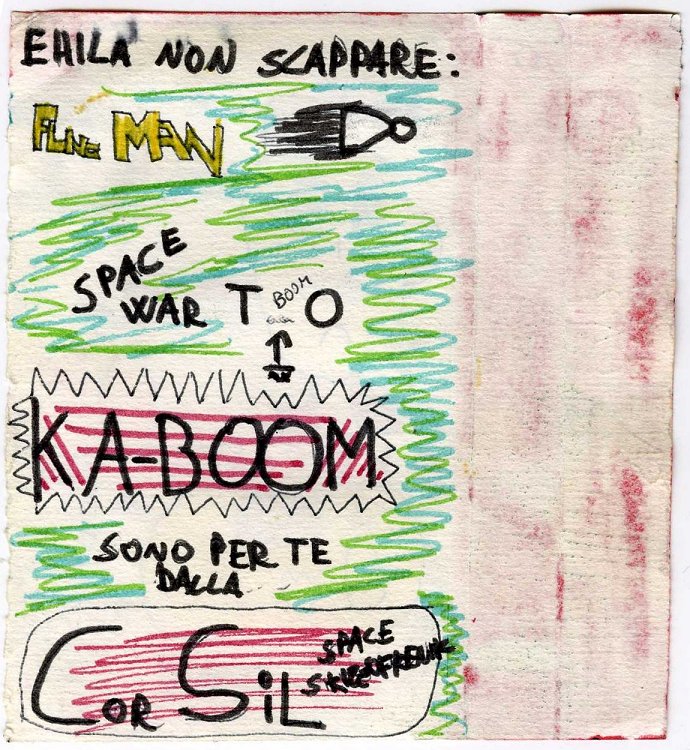 EHILA NON SCAPPARE:
MAN
SPACE
WAR T BOOM O
KA-BOOM
SONO PER TE
DALLA
COR SiL SPACE